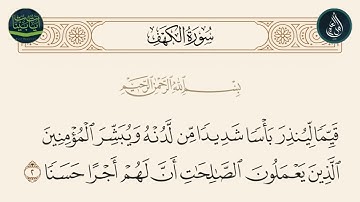 سُورَةُ الكَهْفِ
بِسْمِ اللَّهِ الرَّحْمَٰنِ الرَّحِيمِ
قَيِّمًا لِّيُنذِرَ بَأْسًا شَدِيدًا مِّن لَّدُنْهُ وَيُبَشِّرَ الْمُؤْمِنِينَ
الَّذِينَ يَعْمَلُونَ الصَّالِحَاتِ أَنَّ لَهُمْ أَجْرًا حَسَنًا ٢